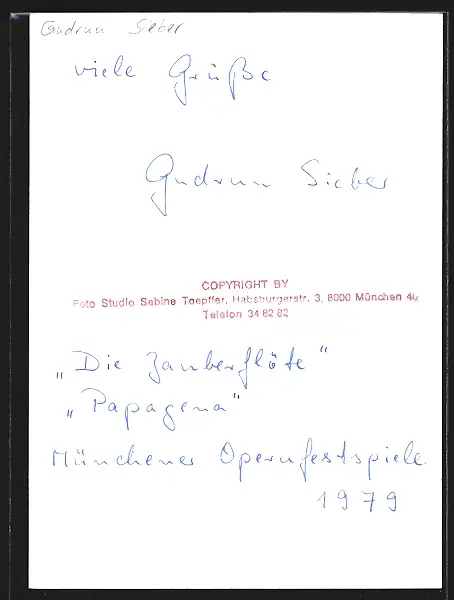 Gudrun Sieber
viele Grüße
Gudrun Sieber
COPYRIGHT BY
Foto Studio Sabine Toepffer, Habsburgerstr. 3, 8000 München 40
Telefon 34 82 82
„Die Zauberflöte"
„Papagena"
Münchener Opernfestspiele.
1979